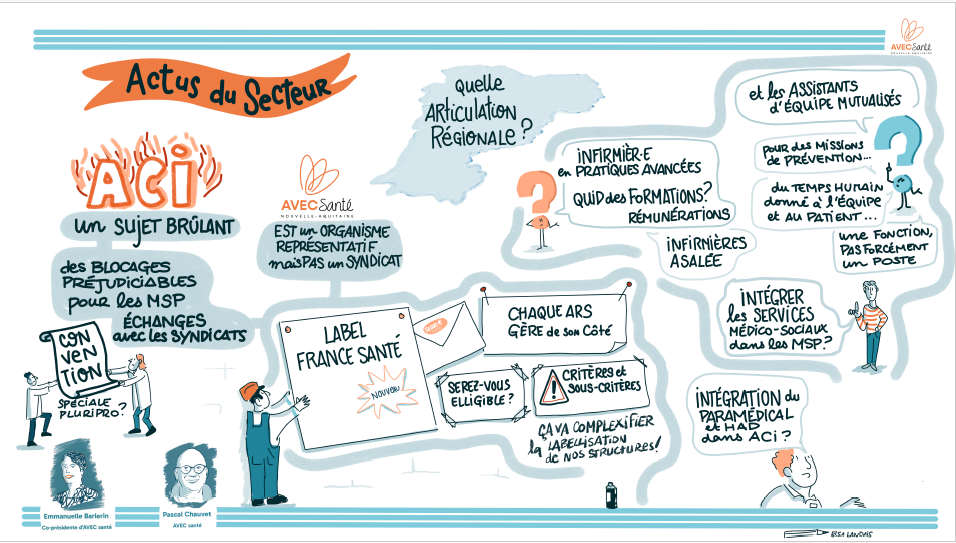 Actus du Secteur
AVECSanté
NOUVELLE-AQUITAINE
ACi
un SUJET BRÛLANT
des BLOCAGES
PRÉJUDICIABLES
pour les MSP
ÉCHANGES
avec les SYNDICATS
CONVENTION
SPÉCIALE
PLURIPRO?
Emmanuelle Barlerin
Co-présidente d'AVEC santé
Pascal Chauvet
AVEC santé
AVECSanté
NOUVELLE-AQUITAINE
EST un ORGANISME
REPRÉSENTATIF
mais PAS un SYNDICAT
LABEL
FRANCE SANTÉ
NOUVEAU
CHAQUE ARS
GÈRE de son CÔTÉ
SEREZ-VOUS
ELLIGIBLE?
CRITÈRES et
SOUS-CRITÈRES
ÇA VA COMPLEXIFIER
la LABELLISATION
de NOS STRUCTURES!
quelle
ARTICULATION
RÉGIONALE?
INFIRMIÈR·E
en PRATIQUES AVANCÉES
QUID des FORMATIONS?
RÉMUNÉRATIONS
INFIRNIÈRES
ASALÉE
et les ASSISTANTS
d'ÉQUIPE MUTUALISÉS
pour des MISSIONS
de PRÉVENTION...
du TEMPS HUMAIN
donné à l'ÉQUIPE
et AU PATIENT...
une FONCTION,
PAS FORCÉMENT
un POSTE
INTÉGRER
les SERVICES
MÉDICO-SOCIAUX
dans les MSP?
INTÉGRATION du
PARAMÉDICAL
et HAD
dans ACi?